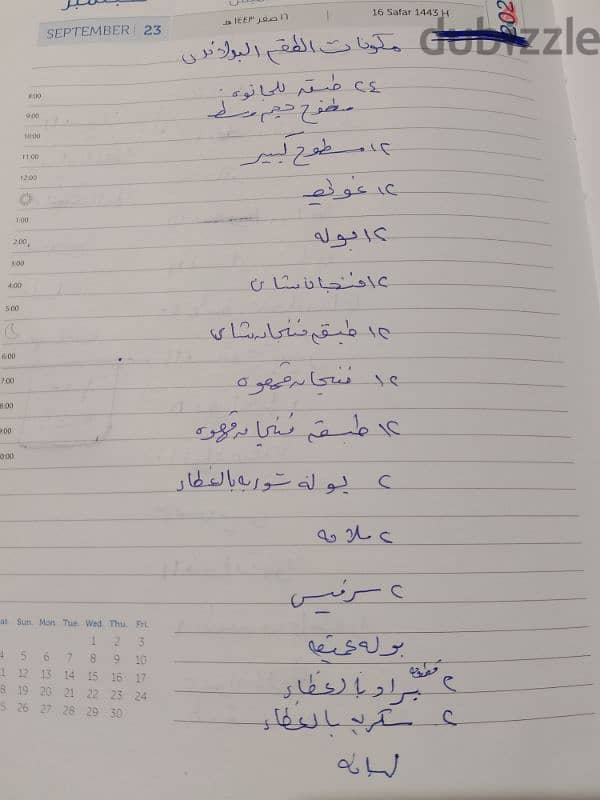 سبتمبر
SEPTEMBER 23
١٦ صفر ١٤٤٣ هـ
16 Safar 1443 H
202
dubizzle
مكونات الطقم البولاندى
٢٤ طبقه للجانوه
مطفوح حجم وسط
١٢ مسطوح كبير
١٢ غويط
١٢ بوله
١٢ فنجان شاى
١٢ طبقه فنجان شاى
١٢ فنجان قهوه
١٢ طبقه فنجان قهوه
٢ بوله شوربه بالغطاء
٢ ملاحه
٢ سرفيس
بوله عميقه
٢ براد بالغطاء
٢ سكريه بالغطاء
لبانه
8:00
9:00
10:00
11:00
12:00
1:00
2:00
3:00
4:00
5:00
6:00
7:00
8:00
9:00
0:00
at. Sun. Mon. Tue. Wed. Thu. Fri.
1 2 3
4 5 6 7 8 9 10
11 12 13 14 15 16 17
18 19 20 21 22 23 24
25 26 27 28 29 30